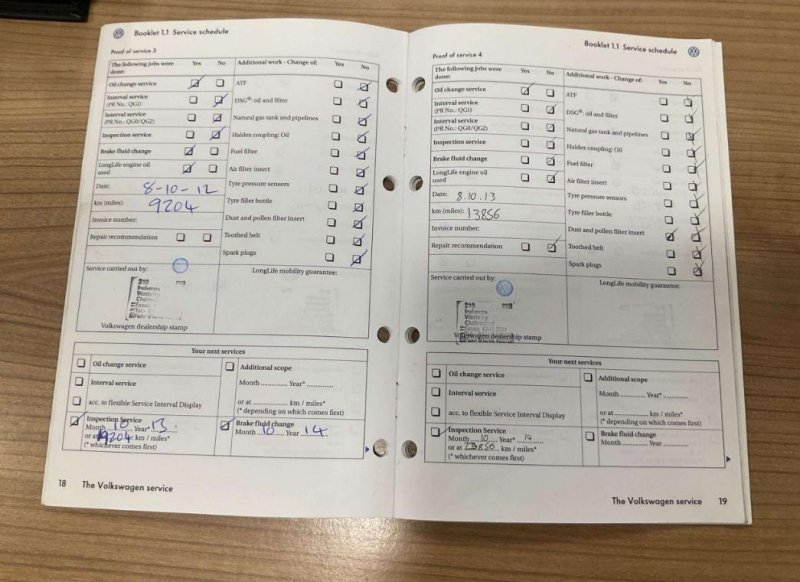 Booklet 1.1 Service schedule
Proof of service 3
The following jobs were done: Yes No
Oil change service
Interval service (PR No.: QG1)
Interval service (PR No.: QG0/QG2)
Inspection service
Brake fluid change
LongLife engine oil used
Date: 8-10-12
km (miles): 9204
Invoice number:
Repair recommendation
Additional work - Change of: Yes No
ATF
DSG®: oil and filter
Natural gas tank and pipelines
Haldex coupling: Oil
Fuel filter
Air filter insert
Tyre pressure sensors
Tyre filler bottle
Dust and pollen filter insert
Toothed belt
Spark plugs
Service carried out by:
LongLife mobility guarantee:
210
Volkswagen dealership stamp
Your next services
Oil change service
Interval service
acc. to flexible Service Interval Display
Inspection Service
Month 10 Year* 13
or at 19204 km / miles*
(* whichever comes first)
Additional scope
Month ............ Year* ............
or at ............ km / miles*
(* depending on which comes first)
Brake fluid change
Month 10 Year 14
18 The Volkswagen service
Booklet 1.1 Service schedule
Proof of service 4
The following jobs were done: Yes No
Oil change service
Interval service (PR No.: QG1)
Interval service (PR No.: QG0/QG2)
Inspection service
Brake fluid change
LongLife engine oil used
Date: 8.10.13
km (miles): 13856
Invoice number:
Repair recommendation
Additional work - Change of: Yes No
ATF
DSG®: oil and filter
Natural gas tank and pipelines
Haldex coupling: Oil
Fuel filter
Air filter insert
Tyre pressure sensors
Tyre filler bottle
Dust and pollen filter insert
Toothed belt
Spark plugs
Service carried out by:
LongLife mobility guarantee:
210
Volkswagen dealership stamp
Your next services
Oil change service
Interval service
acc. to flexible Service Interval Display
Inspection Service
Month 10 Year* 14
or at km / miles*
(* whichever comes first)
Additional scope
Month ............ Year* ............
or at ............ km / miles*
(* depending on which comes first)
Brake fluid change
Month ............ Year ............
The Volkswagen service 19